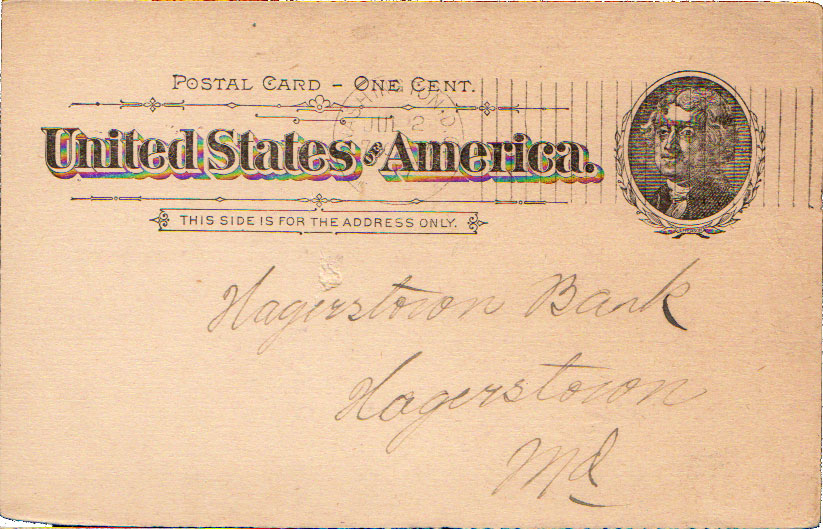 POSTAL CARD – ONE CENT.
United States OF America.
THIS SIDE IS FOR THE ADDRESS ONLY.
Hagerstown Bank
Hagerstown
Md